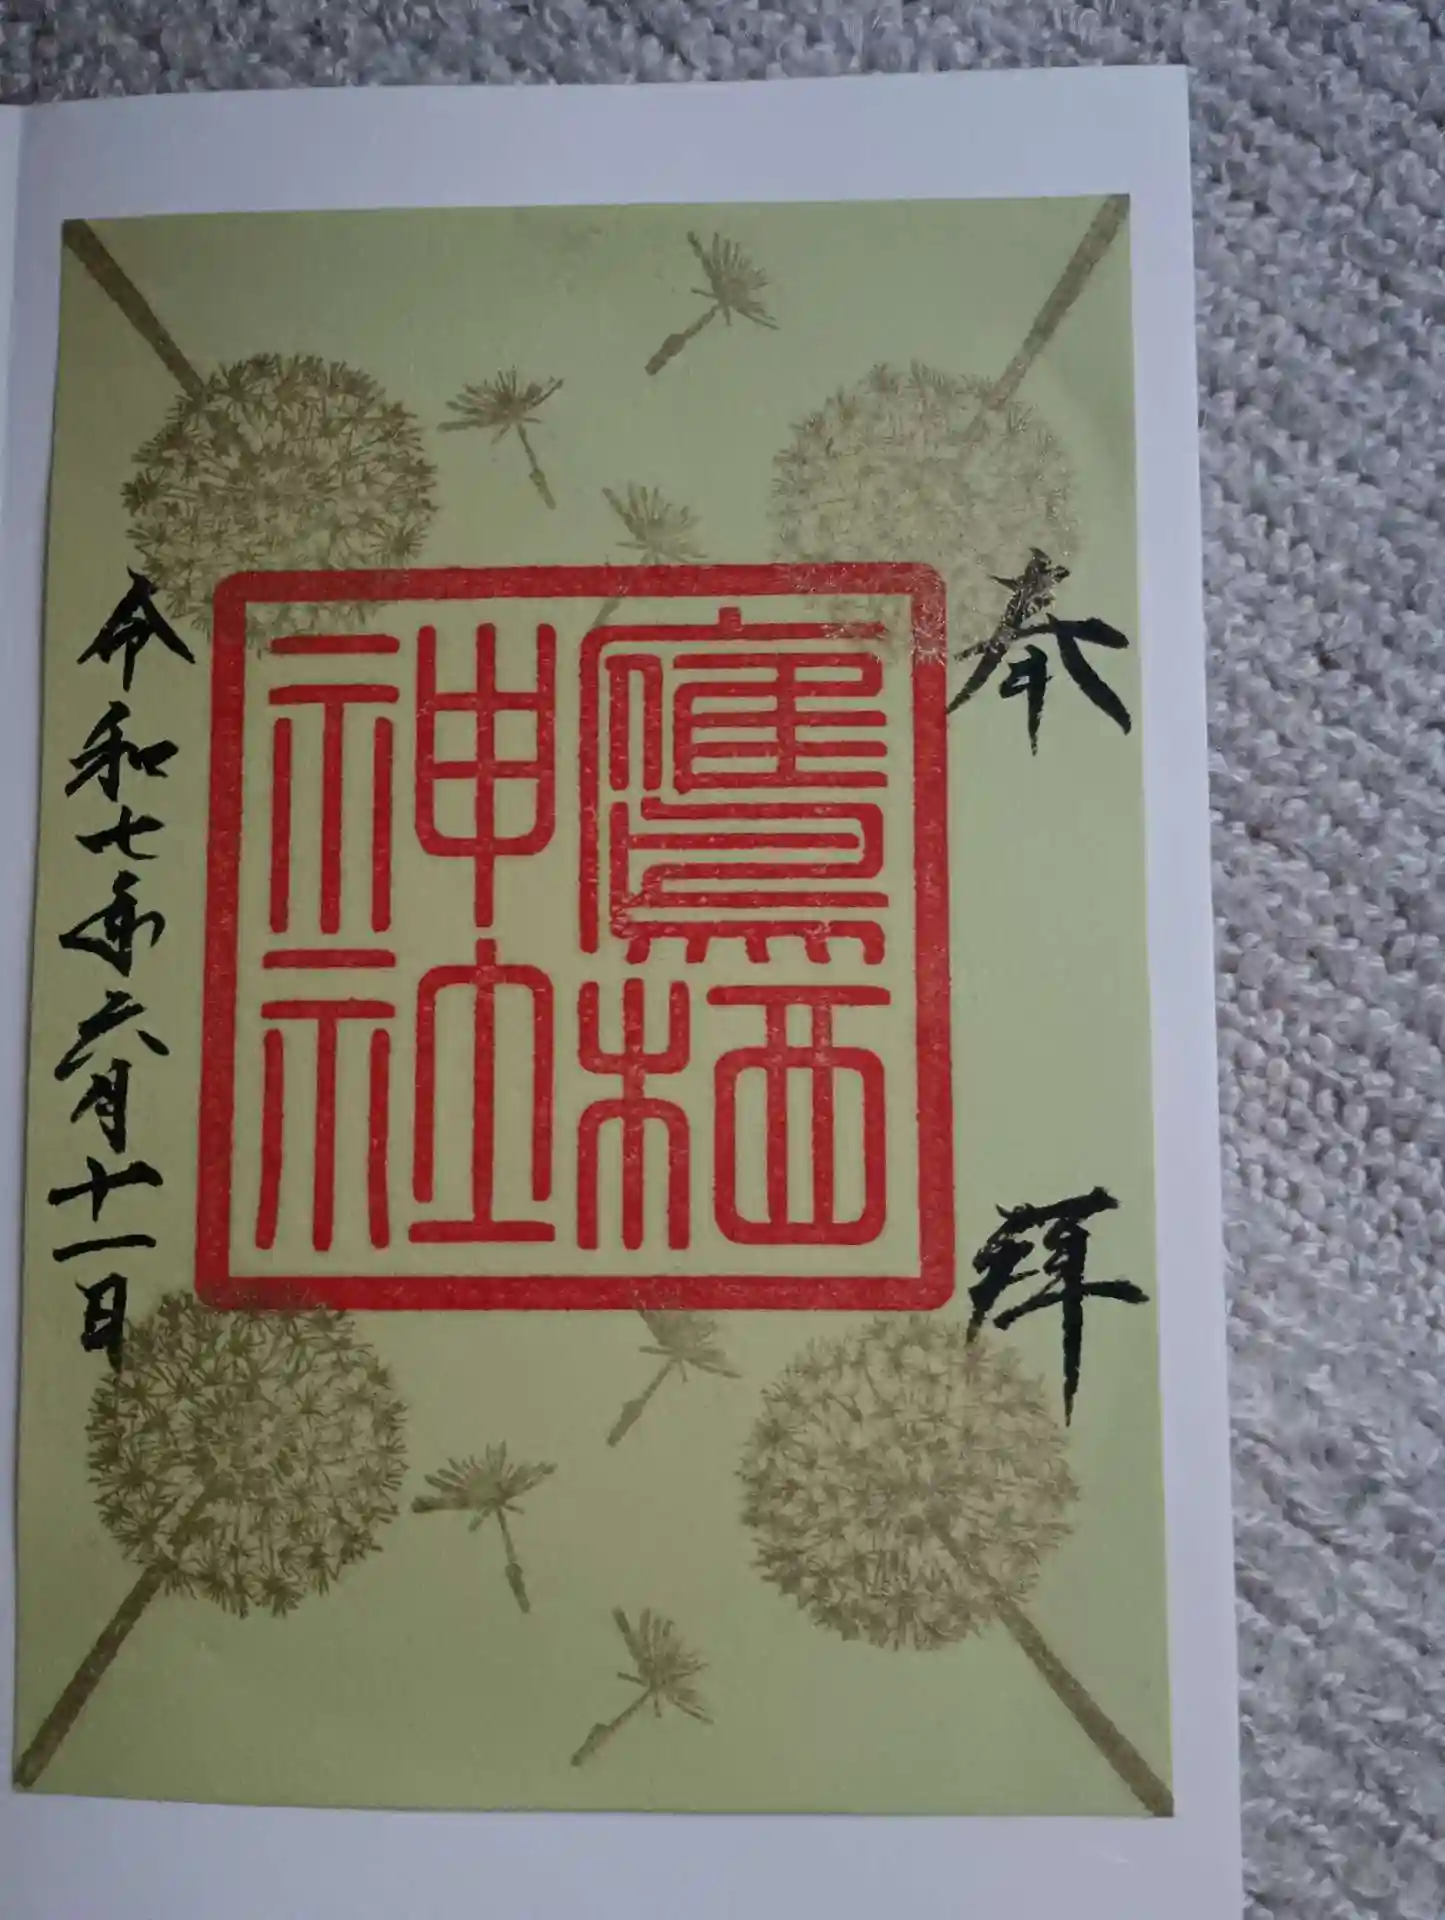 奉拜
鷹栖
神社
令和七年六月十一日